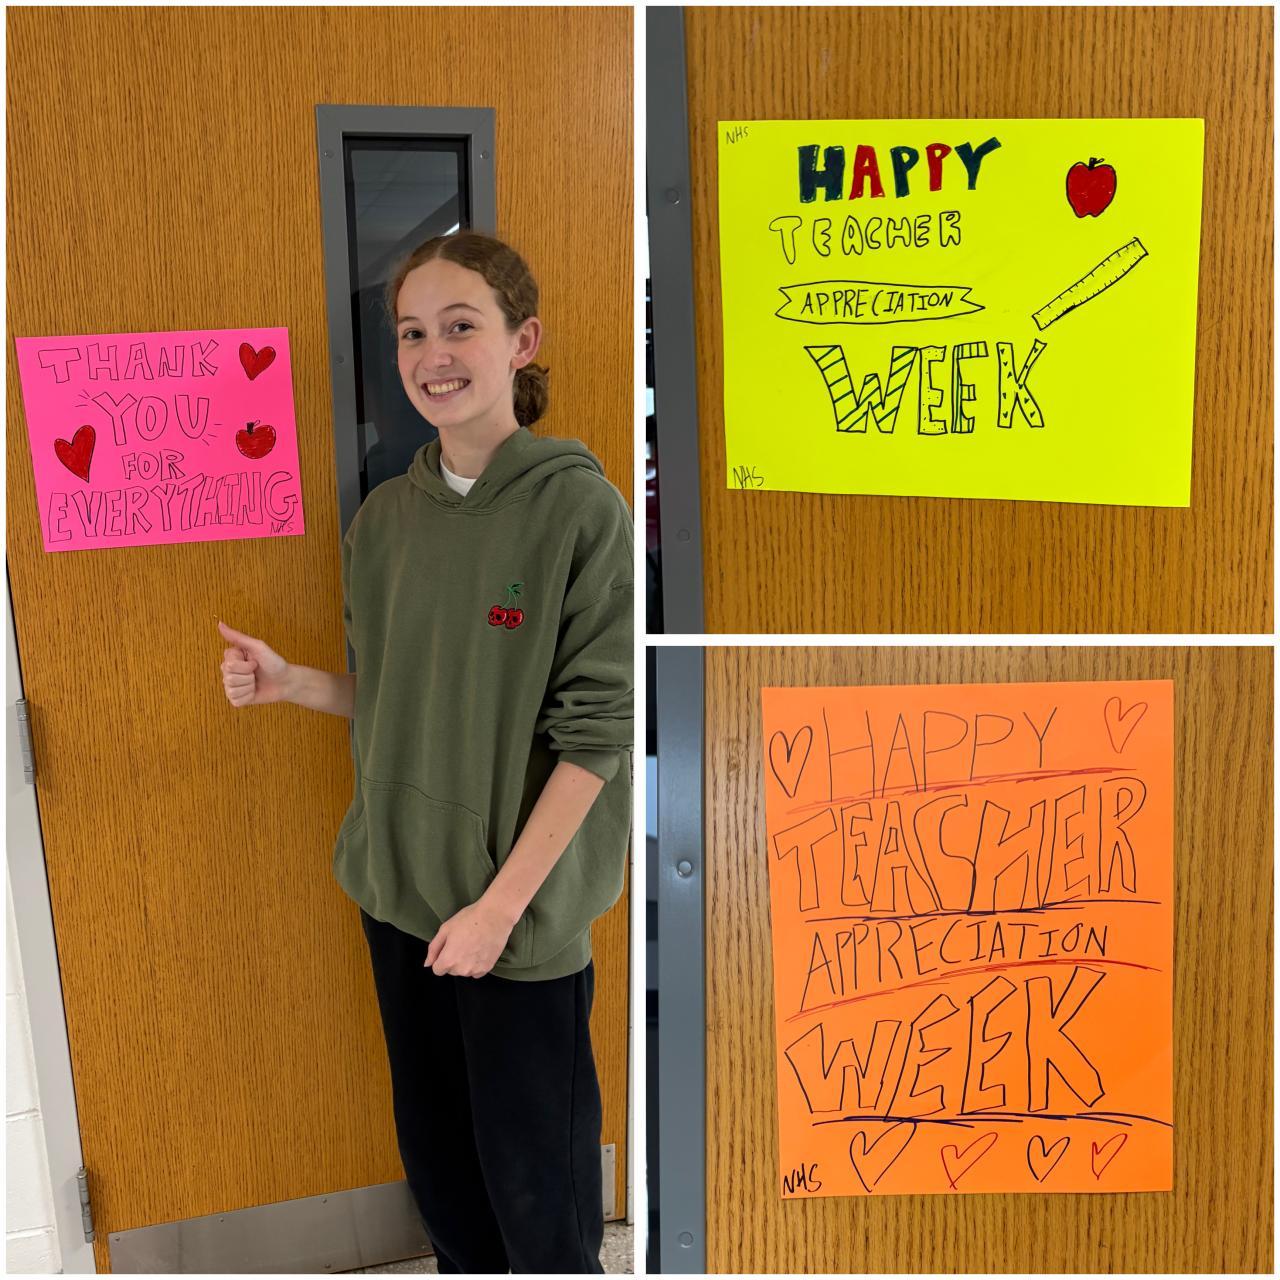 THANK
YOU
FOR
EVERYTHING
NHS
NHS
HAPPY
TEACHER
APPRECIATION
WEEK
NHS
HAPPY
TEACHER
APPRECIATION
WEEK
NHS